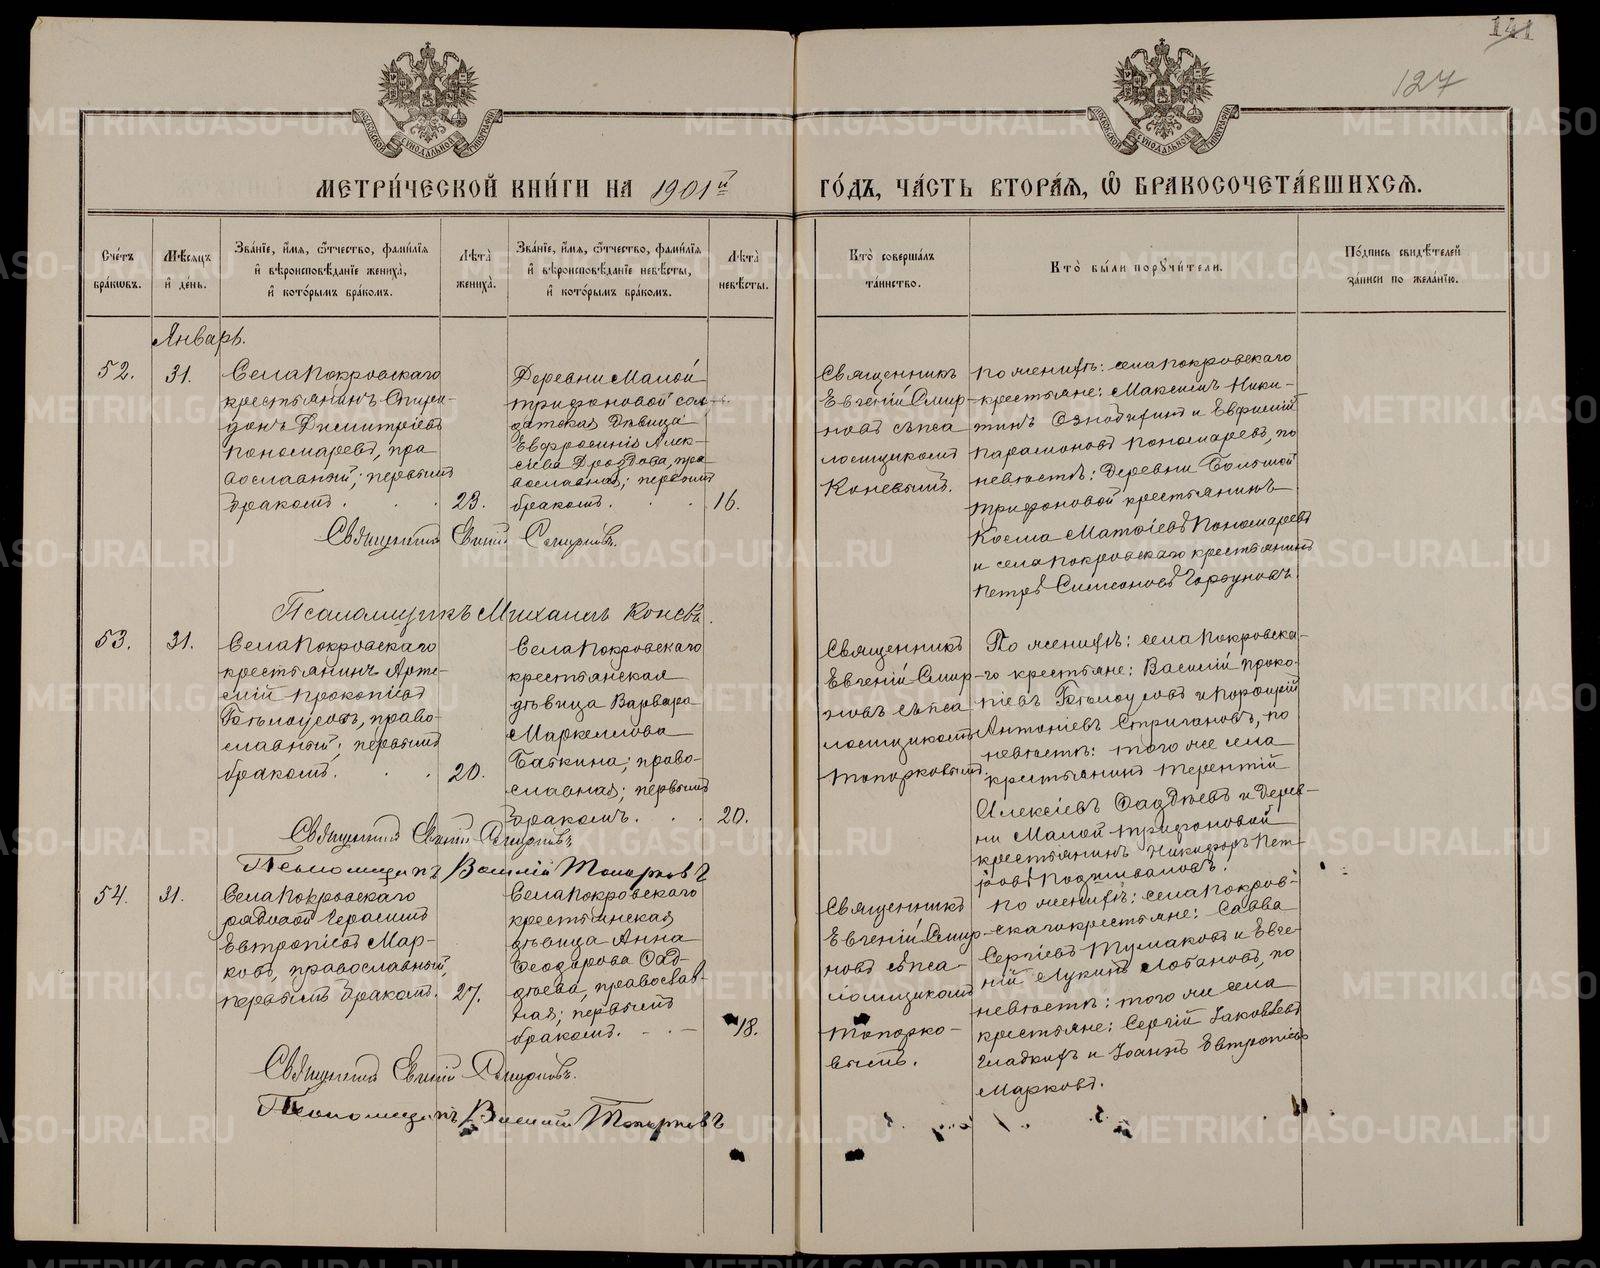 141
127
МЕТРИ́ЧЕСКОЙ КНИ́ГИ НА 1901й ГО́ДЪ, ЧА́СТЬ ВТОРА́Я, Ѽ БРАКОСОЧЕТА́ВШИХСЯ.
Сче́тъ бра́ковъ.
Мѣ́сяцъ и҆ де́нь.
Зва́нїе, и҆́мя, ѻ҆́тчество, фами́лїя и҆ вѣроисповѣ́данїе жениха̀, и҆ кото́рымъ бра́комъ.
Лѣ́та̀ жениха̀.
Зва́нїе, и҆́мя, ѻ҆́тчество, фами́лїя и҆ вѣроисповѣ́данїе невѣ́сты, и҆ кото́рымъ бра́комъ.
Лѣ́та̀ невѣ́сты.
Кто̀ соверша́лъ та́инство.
Кто̀ бы́ли порꙋчи́тели.
По́дпись свидѣ́телей за́писи по жела́нїю.
Январь.
52.
31.
Села Покровскаго
крестьянинъ Спири-
донъ Димитріевъ
Пономаревъ, пра
вославный; первымъ
бракомъ.
23.
Деревни Малой
Трифоновой сол-
датская дѣвица
Евфросинія Алек-
сіева Дроздова, пра
вославная; первымъ
бракомъ.
16.
Священникъ
Евгеній Смир-
новъ съ пса
ломщикомъ
Коневымъ.
По женихѣ: села Покровскаго
крестьяне: Максимъ Ники-
тинъ Ознобихинъ и Евфимій
Парамоновъ Пономаревъ, по
невѣстѣ: деревни Большой
Трифоновой крестьянинъ
Косма Матѳіевъ Пономаревъ
и села Покровскаго крестьянинъ
Петръ Симеоновъ Горбуновъ.
Священникъ Евгеній Смирновъ.
Псаломщикъ Михаилъ Коневъ.
53.
31.
Села Покровскаго
крестьянинъ Арте-
мій Прокопіевъ
Бѣлоусовъ, право-
славный; первымъ
бракомъ.
20.
Села Покровскаго
крестьянская
дѣвица Варвара
Маркеллова
Бабкина; право-
славная; первымъ
бракомъ.
20.
Священникъ
Евгеній Смир-
новъ съ пса
ломщикомъ
Топорковымъ.
По женихѣ: села Покровска-
го крестьяне: Василій Проко-
піевъ Бѣлоусовъ и Порфирій
Антоніевъ Стригановъ, по
невѣстѣ: того же села
крестьянинъ Терентій
Алексіевъ Ѳаддѣевъ и дерев-
ни Малой Трифоновой
крестьянинъ Никифоръ Пет-
ровъ Подшиваловъ.
Священникъ Евгеній Смирновъ
Псаломщикъ Василій Топорковъ
54.
31.
Села Покровскаго
рядовой Герасимъ
Евтропіевъ Мар-
ковъ, православный,
первымъ бракомъ.
27.
Села Покровскаго
крестьянская
дѣвица Анна
Ѳеодорова Ѳад-
дѣева, православ-
ная; первымъ
бракомъ.
18.
Священникъ
Евгеній Смир-
новъ съ пса-
ломщикомъ
Топорко-
вымъ.
По женихѣ: села Покров-
скаго крестьяне: Савва
Сергіевъ Тумаковъ и Евге-
ній Лукинъ Лобановъ, по
невѣстѣ: того же села
крестьяне: Сергій Іаковлевъ
Гладкихъ и Іоаннъ Евтропіевъ
Марковъ.
Священникъ Евгеній Смирновъ.
Псаломщикъ Василій Топорковъ
METRIKI.GASO-URAL.RU